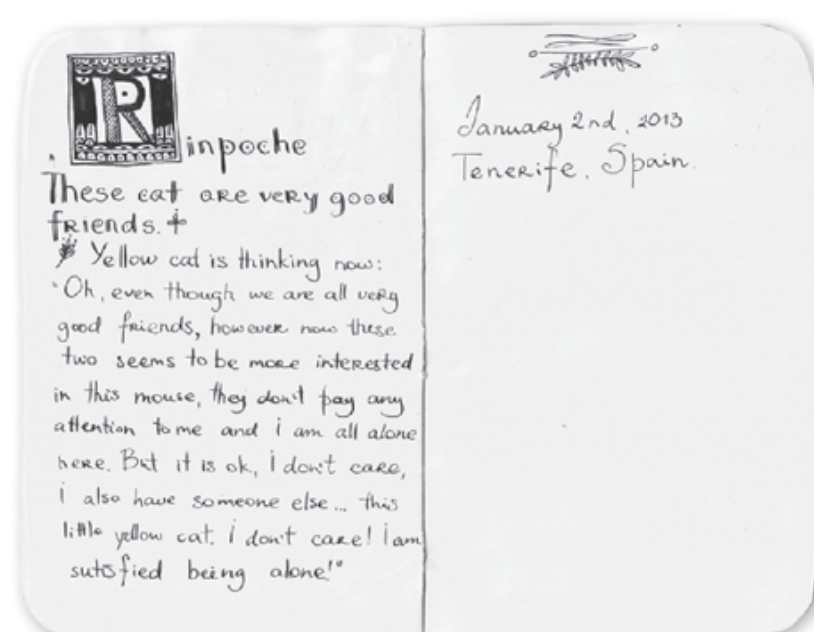 Rinpoche
These cat are very good
friends.
Yellow cat is thinking now:
"Oh, even though we are all very
good friends, however now these
two seems to be more interested
in this mouse, they don't pay any
attention to me and i am all alone
here. But it is ok, i don't care,
i also have someone else... this
little yellow cat. i don't care! i am
sutisfied being alone!"
January 2nd, 2013
Tenerife, Spain.